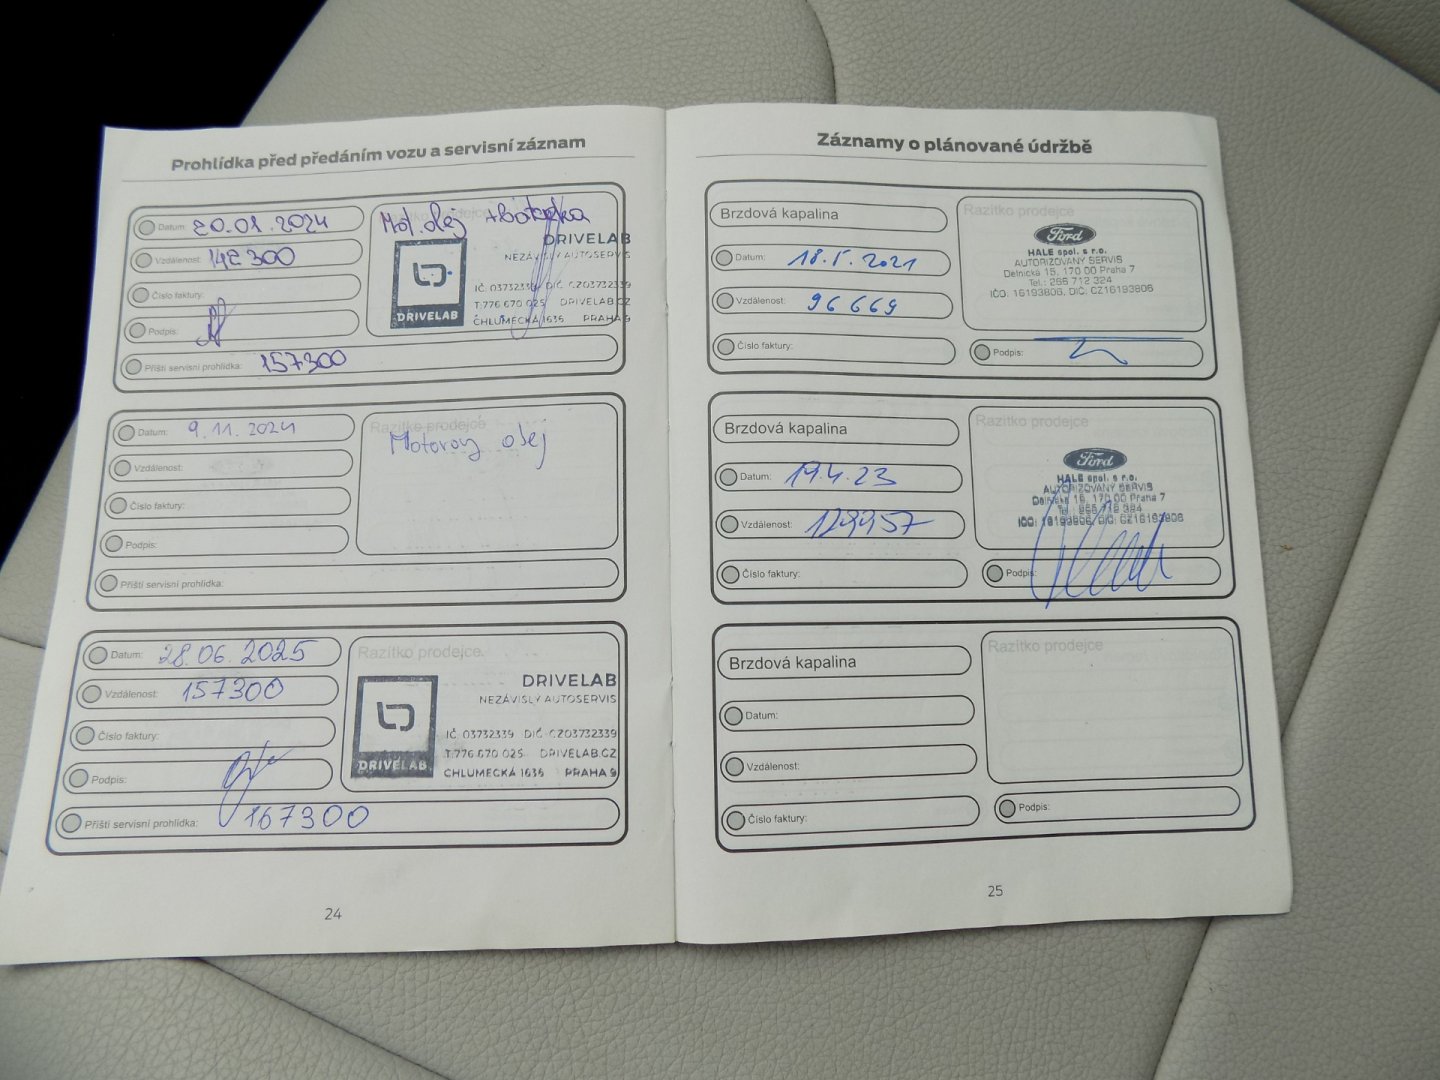 Prohlídka před předáním vozu a servisní záznam
Datum: 20.01.2024
Vzdálenost: 142300
Číslo faktury:
Podpis:
Příští servisní prohlídka: 157300
Razítko prodejce
Mot. olej
DRIVELAB
NEZÁVISLÝ AUTOSERVIS
IČ. 03732339 DIČ CZ03732339
T:776 670 025 DRIVELAB.CZ
CHLUMECKÁ 1636 PRAHA 9
DRIVELAB
Datum: 9.11.2024
Vzdálenost:
Číslo faktury:
Podpis:
Příští servisní prohlídka:
Razítko prodejce
Motorovy olej
Datum: 28.06.2025
Vzdálenost: 157300
Číslo faktury:
Podpis:
Příští servisní prohlídka: 167300
Razítko prodejce
DRIVELAB
NEZÁVISLÝ AUTOSERVIS
IČ. 03732339 DIČ CZ03732339
T:776 670 025 DRIVELAB.CZ
CHLUMECKÁ 1636 PRAHA 9
DRIVELAB
24
Záznamy o plánované údržbě
Brzdová kapalina
Datum: 18.5.2021
Vzdálenost: 96669
Číslo faktury:
Razítko prodejce
Ford
HALE spol. s r.o.
AUTORIZOVANÝ SERVIS
Delnická 15, 170 00 Praha 7
Tel.: 266 712 324
IČO: 16193806, DIČ: CZ16193806
Podpis:
Brzdová kapalina
Datum: 19.4.23
Vzdálenost: 129957
Číslo faktury:
Razítko prodejce
Ford
HALE spol. s r.o.
AUTORIZOVANÝ SERVIS
Delnická 15, 170 00 Praha 7
IČO: 16193806, DIČ: CZ16193806
Podpis:
Brzdová kapalina
Datum:
Vzdálenost:
Číslo faktury:
Razítko prodejce
Podpis:
25